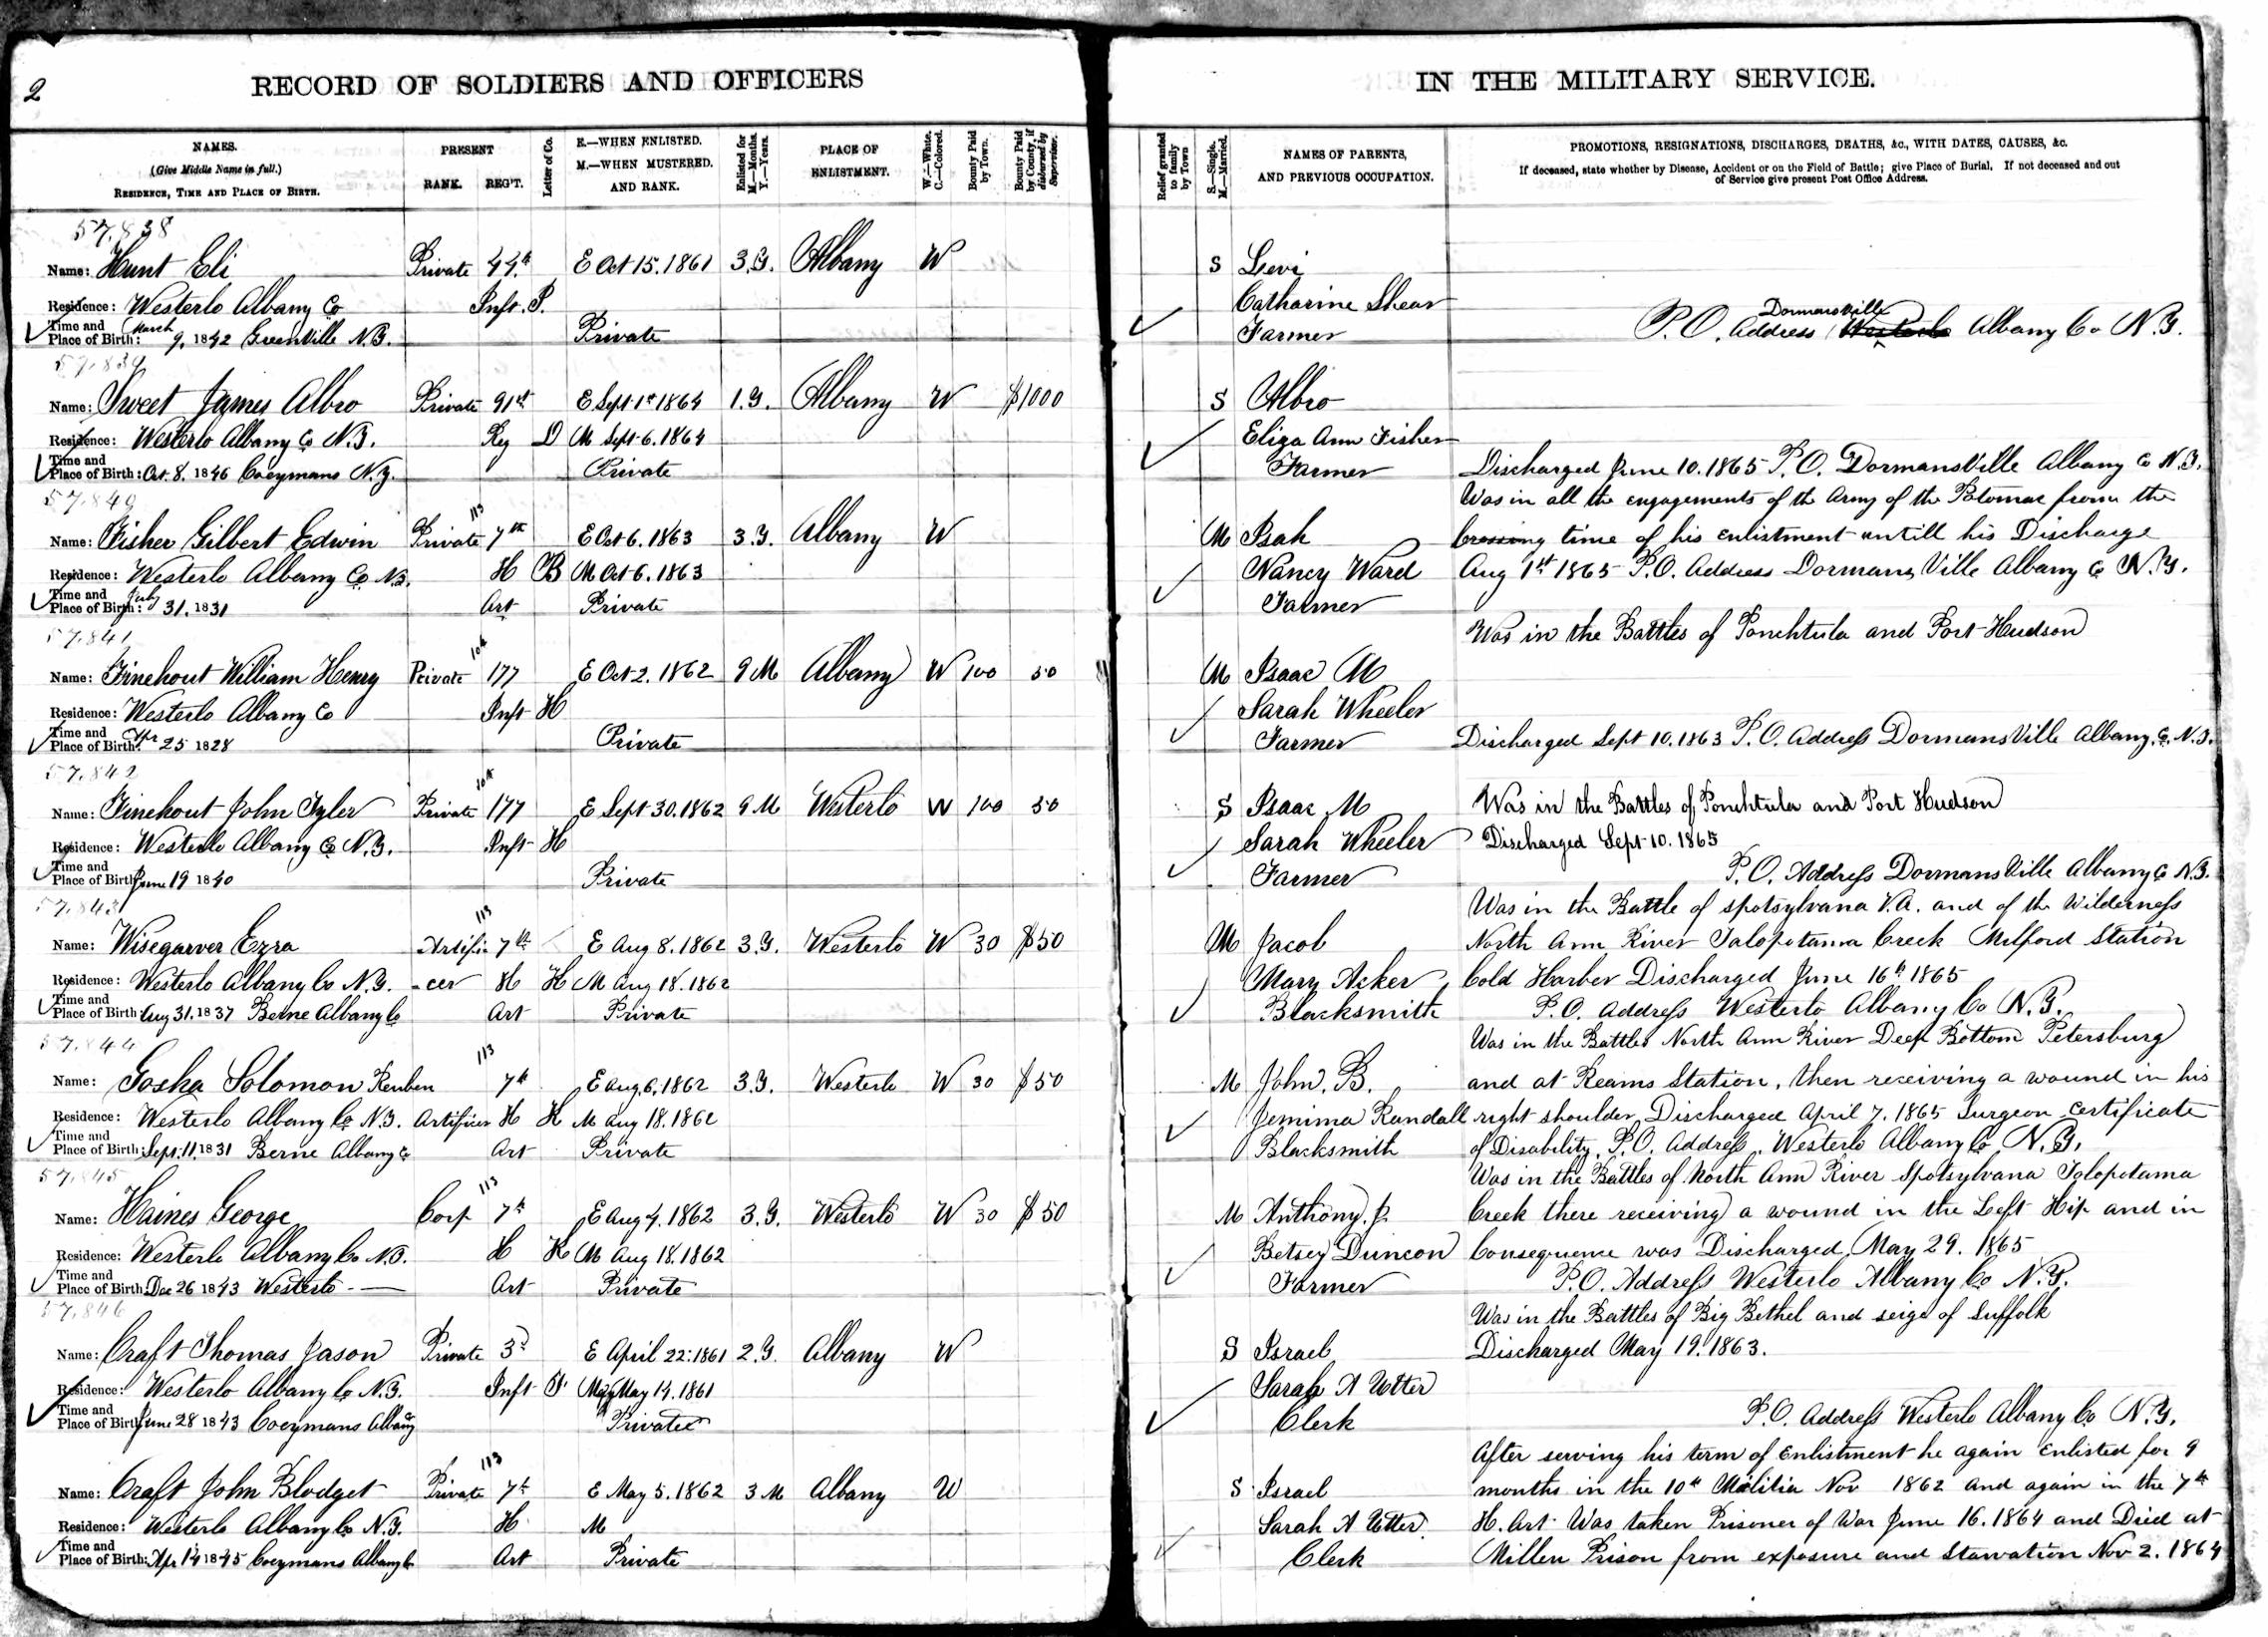 2
RECORD OF SOLDIERS AND OFFICERS
NAMES.
(Give Middle Name in full.)
RESIDENCE, TIME AND PLACE OF BIRTH.
PRESENT
RANK. REG'T.
Letter of Co.
E.—WHEN ENLISTED.
M.—WHEN MUSTERED.
AND RANK.
Enlisted for
M.—Months.
Y.—Years.
PLACE OF
ENLISTMENT.
W.—White.
C.—Colored.
Bounty Paid
by Town.
Bounty Paid
by County, if
disbursed by
Supervisor.
57,838
Name: Hunt Eli Private 44th E Oct 15. 1861 3.Y. Albany W
Residence: Westerlo Albany Co Inft.
Time and
Place of Birth: March 9, 1842 Greenville N.Y. Private
57,839
Name: Sweet James Albro Private 91st E Sept 1st 1864 1.Y. Albany W $1000
Residence: Westerlo Albany Co N.Y. Reg D M Sept 6. 1864
Time and
Place of Birth: Oct. 8. 1846 Coeymans N.Y. Private
57,840
113
Name: Fisher Gilbert Edwin Private 7th E Oct 6. 1863 3.Y. Albany W
Residence: Westerlo Albany Co N.Y. H B M Oct 6. 1863
Time and
Place of Birth: July 31. 1831 Art Private
57,841
10th
Name: Finehout William Henry Private 177 E Oct 2. 1862 9 M Albany W 100 50
Residence: Westerlo Albany Co Inft H
Time and
Place of Birth: Apr 25 1828 Private
57,842
10th
Name: Finehout John Tyler Private 177 E Sept 30. 1862 9 M Westerlo W 100 50
Residence: Westerlo Albany Co N.Y. Inft H
Time and
Place of Birth: June 19 1840 Private
57,843
113
Name: Wisegarver Ezra Artifi- 7th E Aug 8. 1862 3.Y. Westerlo W 30 $50
Residence: Westerlo Albany Co N.Y. -cer H H M Aug 18. 1862
Time and
Place of Birth: Aug 31. 1837 Berne Albany Co Art Private
57,844
113
Name: Goska Solomon Reuben 7th E Aug 6. 1862 3.Y. Westerlo W 30 $50
Residence: Westerlo Albany Co N.Y. Artificer H H M Aug 18. 1862
Time and
Place of Birth: Sept. 11. 1831 Berne Albany Co Art Private
57,845
113
Name: Haines George Corp 7th E Aug 4. 1862 3.Y. Westerlo W 30 $50
Residence: Westerlo Albany Co N.Y. H M Aug 18. 1862
Time and
Place of Birth: Dec 26 1843 Westerlo Art Private
57,846
Name: Craft Thomas Jason Private 3d E April 22. 1861 2.Y. Albany W
Residence: Westerlo Albany Co N.Y. Inft M May 14. 1861
Time and
Place of Birth: June 28 1843 Coeymans Albany Private
113
Name: Craft John Blodget Private 7th E May 5. 1862 3 M Albany W
Residence: Westerlo Albany Co N.Y. H M
Time and
Place of Birth: Apr 14 1845 Coeymans Albany Co Art Private
IN THE MILITARY SERVICE.
Relief granted
to family
by Town
S.—Single.
M.—Married.
NAMES OF PARENTS,
AND PREVIOUS OCCUPATION.
PROMOTIONS, RESIGNATIONS, DISCHARGES, DEATHS, &c., WITH DATES, CAUSES, &c.
If deceased, state whether by Disease, Accident or on the Field of Battle; give Place of Burial. If not deceased and out
of Service give present Post Office Address.
S Levi
Catharine Shear
Dormansville
Farmer P.O. Address Westerlo Albany Co N.Y.
S Albro
Eliza Ann Fisher
Farmer Discharged June 10. 1865 P.O. Dormansville Albany Co N.Y.
Was in all the engagements of the Army of the Potomac from the
M Isah time of his enlistment untill his Discharge
Nancy Ward Aug 1st 1865 P.O. Address Dormans Ville Albany Co N.Y.
Farmer
Was in the Battles of Ponchtula and Port Hudson
M Isaac M
Sarah Wheeler
Farmer Discharged Sept 10. 1863 P.O. Address Dormansville Albany Co N.Y.
S Isaac M Was in the Battles of Ponchtula and Port Hudson
Sarah Wheeler Discharged Sept 10. 1863
Farmer P.O. Address Dormansville Albany Co N.Y.
Was in the Battle of Spotsylvana V.A. and of the Wilderness
M Jacob North Ann River Talopotama Creek Milford Station
Mary Acker Cold Harber Discharged June 16th 1865
Blacksmith P.O. Address Westerlo Albany Co N.Y.
Was in the Battles North Ann River Deep Bottom Petersburg
M John. B. and at Reams Station, then receiving a wound in his
Jemima Randall right shoulder, Discharged April 7. 1865 Surgeon Certificate
Blacksmith of Disability. P.O. Address. Westerlo Albany Co N.Y.
Was in the Battles of North Ann River Spotsylvana Talopotama
M Anthony J. Creek there receiving a wound in the Left Hip and in
Betsey Duncon Consequence was Discharged, May 29. 1865
Farmer P.O. Address Westerlo Albany Co N.Y.
Was in the Battles of Big Bethel and seige of Suffolk
S Israel Discharged May 19. 1863.
Sarah A Utter
Clerk P.O. Address Westerlo Albany Co N.Y.
After serving his term of Enlistment he again Enlisted for 9
S Israel months in the 10th Militia Nov 1862 and again in the 7th
Sarah A Utter H. Art. Was taken Prisoner of War June 16. 1864 and Died at
Clerk Millen Prison from exposure and starvation Nov 2. 1864